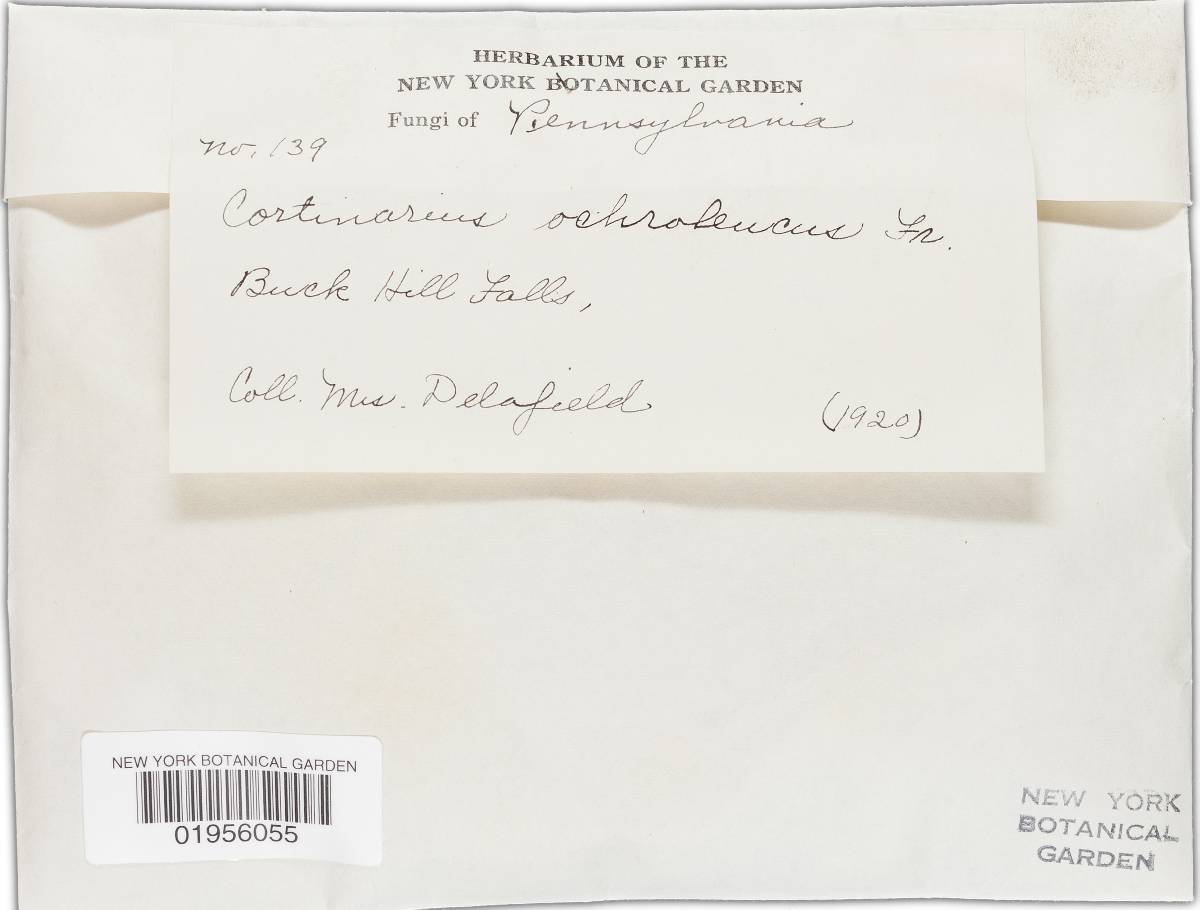 HERBARIUM OF THE
NEW YORK BOTANICAL GARDEN
Fungi of Pennsylvania
No. 139
Cortinarius ochroleucus Fr.
Buck Hill Falls,
Coll. Mrs. Delafield (1920)
NEW YORK BOTANICAL GARDEN
01956055
NEW YORK
BOTANICAL
GARDEN